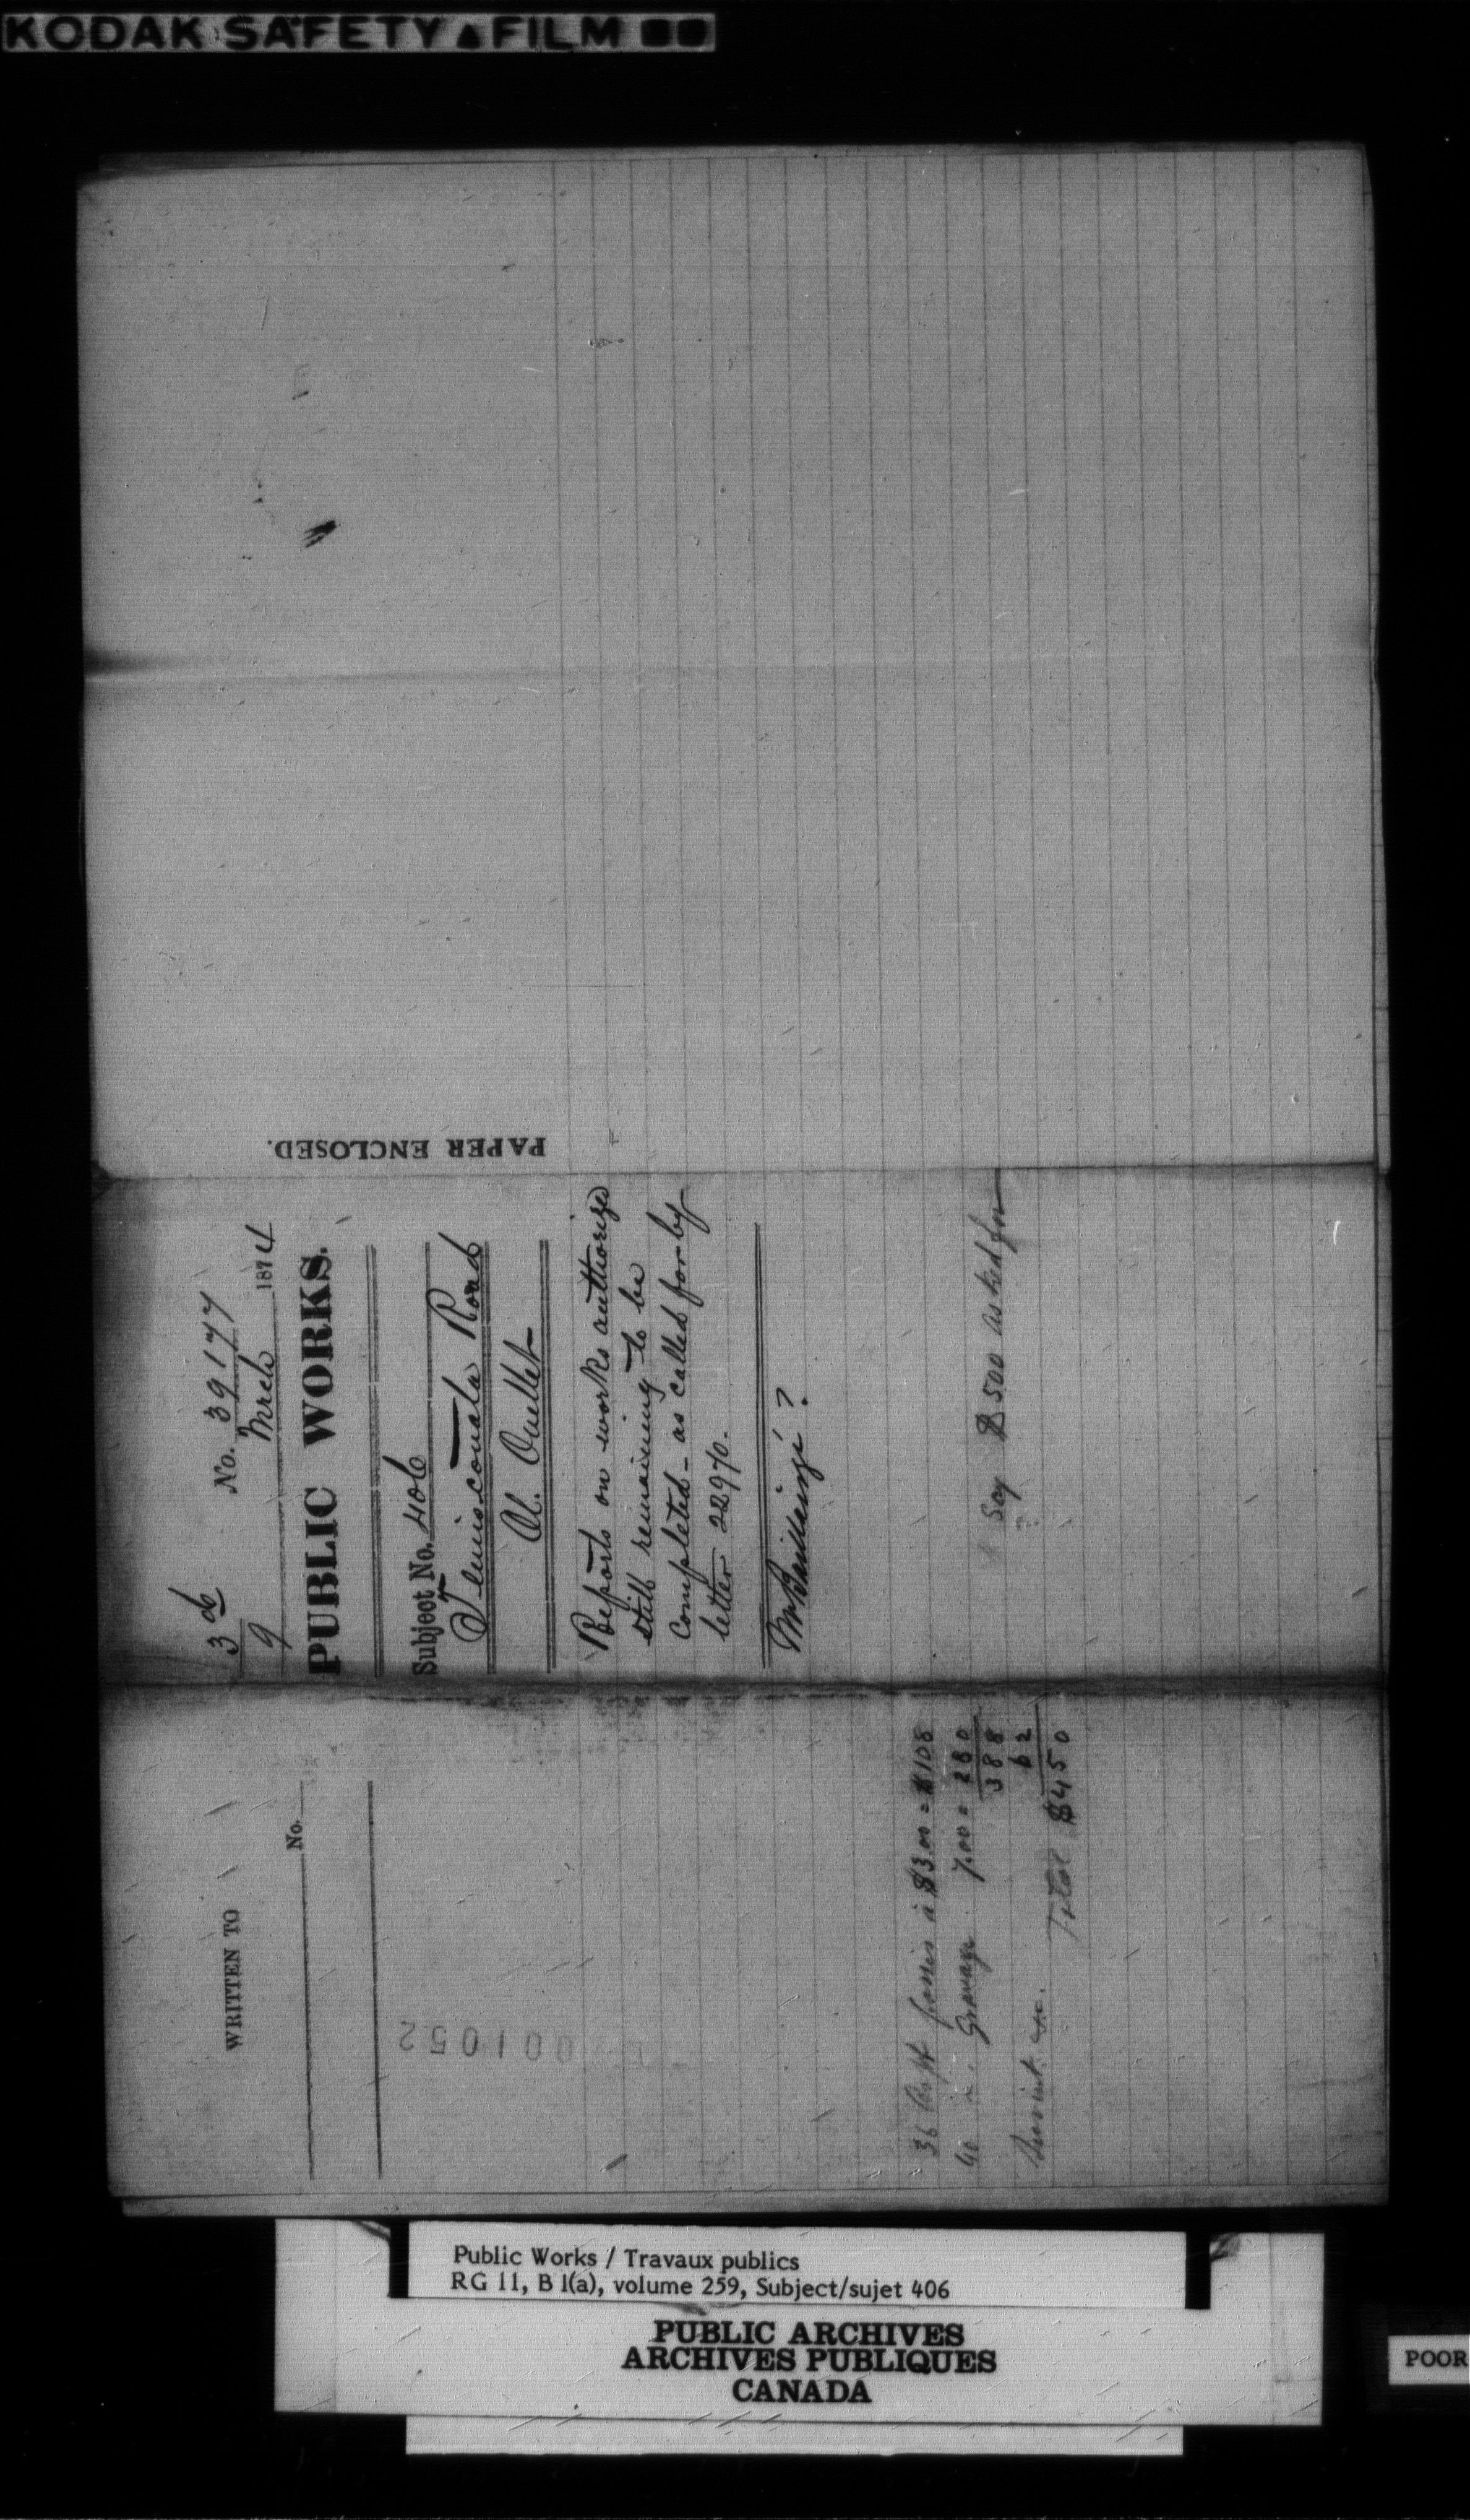 KODAK SAFETY FILM
PAPER ENCLOSED.
3 d
No. 39177
9 March 1874
PUBLIC WORKS.
Subject No. 406
Temiscouata Road
Al. Ouellet
Reports on works authorized
still remaining to be
completed - as called for by
letter 22970.
Say $500 asked for
WRITTEN TO
No.
001052
36 fossés à $3.00 = $108
40 Gravage 7.00 = 280
388
62
Total $450
Public Works / Travaux publics
RG 11, B 1(a), volume 259, Subject/sujet 406
PUBLIC ARCHIVES
ARCHIVES PUBLIQUES
CANADA
POOR